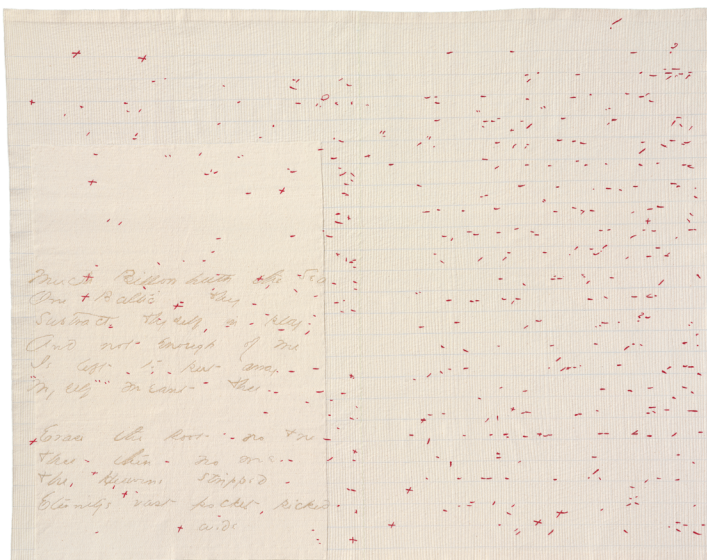 Much Billow hath the Sea
One Baltic - They -
Subtract Thyself, in play,
And not enough of me
Is left - to put away -
"Myself" meant Thee -
Erase the Root - no Tree
Thee - then - no me -
The Heavens stripped -
Eternity's vast pocket, picked -